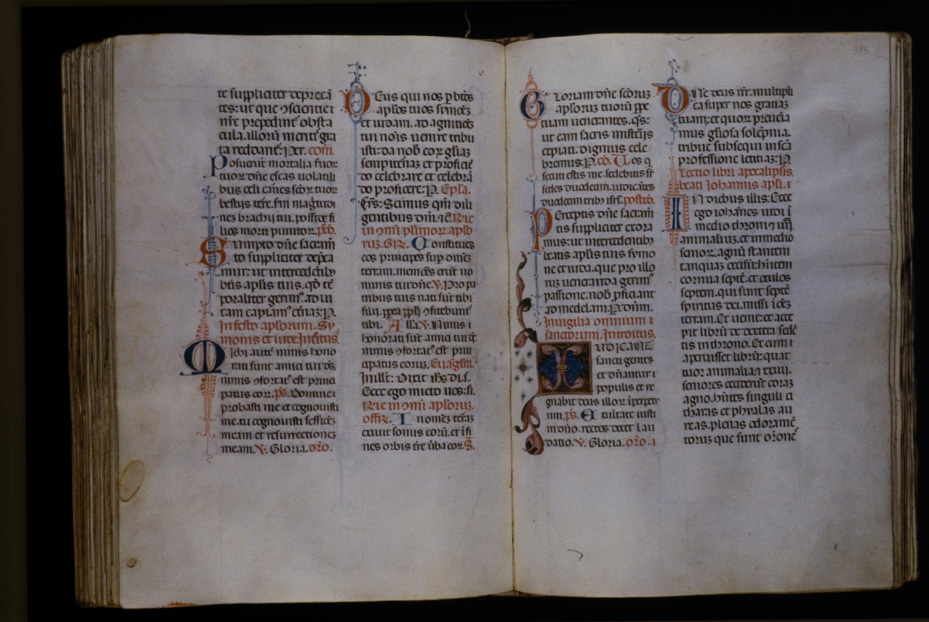 te suppliciter depreca
tes: ut que
nr̄e prepedint obsta
cula. illorū merita gra
ta reddant. Per. com̄.
Posuerūt mortalia suor̄
tuor̄ dn̄e escas uolatili
bus celi carnes scōr̄ tuor̄
bestiis terre. sm̄ magnitudi
nes brachii tui. posside fi
lios morti punitor̄.
Sumpto dn̄e sacram̄
to suppliciter depca
mur: ut intercedētib;
btīs aplīs tuis. qd̄ tē
poraliter gerim;. ad ui
tam capiam; et̄nā. P.
In festo aplorum. Sy
monis et iude. Introitus.
Michi autē nimis hono
rati sunt amici tui ds̄
nimis ɔfortat; est princi
patus eorr. ps̄. Domine
probasti me et cognouisti
me. tu cognouisti sessionē
meam et resurrectionē
meam. V. Gloria. oro.
Deus qui nos p btōs
aplōs tuos
et iudam. ad agnitiōē
tui noīs uenire tribu
isti: da nob eor̄ gl̄iaz
sempiternaz et proficiē
do celebrare et celebrā
do proficere. P. Epl̄a.
Frs̄: Scimus qm̄ dili
gentibus dm̄. Rīe
in uni plimor̄ aplō
rū. GR. Constitues
eos principes sup omē
terram. memōes erūt no
minis tui dn̄e. V. Pro pa
tribus tuis nati sūt tibi
filii. ppea ppli ɔfitebunt̄
tibi. Alla. V. Nimis
honorati sunt amici tui ds̄
nimis ɔfortat; est prin
cipatus eorum. Euaglm̄.
In illo. Dixit ihs̄ dis.
Ecce ego micto uos. s.
Rīe in uni aplorū.
offr̄. In omnez terrā
exiuit sonus eorū. et in
nes orbis tr̄e ūba eor̄. S̄.
Gloriam dn̄e scōrū
aplorū tuorū ppe
tuam uenerantes. qs̄:
ut eam sacris misteriis
expiati. dignius cele
bremus. P. cō. Uos q
secuti estis me. sedebitis sr̄
sedes duodecim. iudicātes
duodecim tribȝ isrl̄. postcō.
Perceptis dn̄e sacram̄
tis suppliciter exora
mus: ut intercedentib;
beatis aplīs tuis symo
ne et iuda. que pro illo
rū ueneranda gerim;
passione. nob pficiant
ad medelam. P. dn̄m.
In uigilia omnium
sanctorum. Introitus.
Iudicant
sancti gentes
et dn̄antur
populis et re
gnabit deus illor̄ in perpe
uum. ps̄. Exultate iusti
in dn̄o. rectos decet lau
datio. V. Gloria. oro.
315
Dn̄e deus nr̄. multipli
ca super nos gratiā
tuam: et quor̄ preuenia
mus gl̄iosa solēpnia.
tribue subsequi in scā
professione letitiaz. P.
Lectio libri apocalipsis
beati Iohannis apl̄i.
In diebus illis: Ecce
ego iohānes uidi ī
medio throni et iiii
animaliuz. et in medio
senior̄. agnū stantem
tanquaz occisū. hn̄tem
cornua septē. et oculos
septem. qui sunt septē
spiritus dei. missi ī oēz
terram. Et uenit et acce
pit librū de dextera sedē
tis in throno. Et cum
aperuisset librū: quat
tuor animalia et xxiiii.
seniores ceciderūt coraz
agno. hn̄tes singuli ci
tharas et phyalas au
reas. plenas odoramē
torū: que sunt orōnes